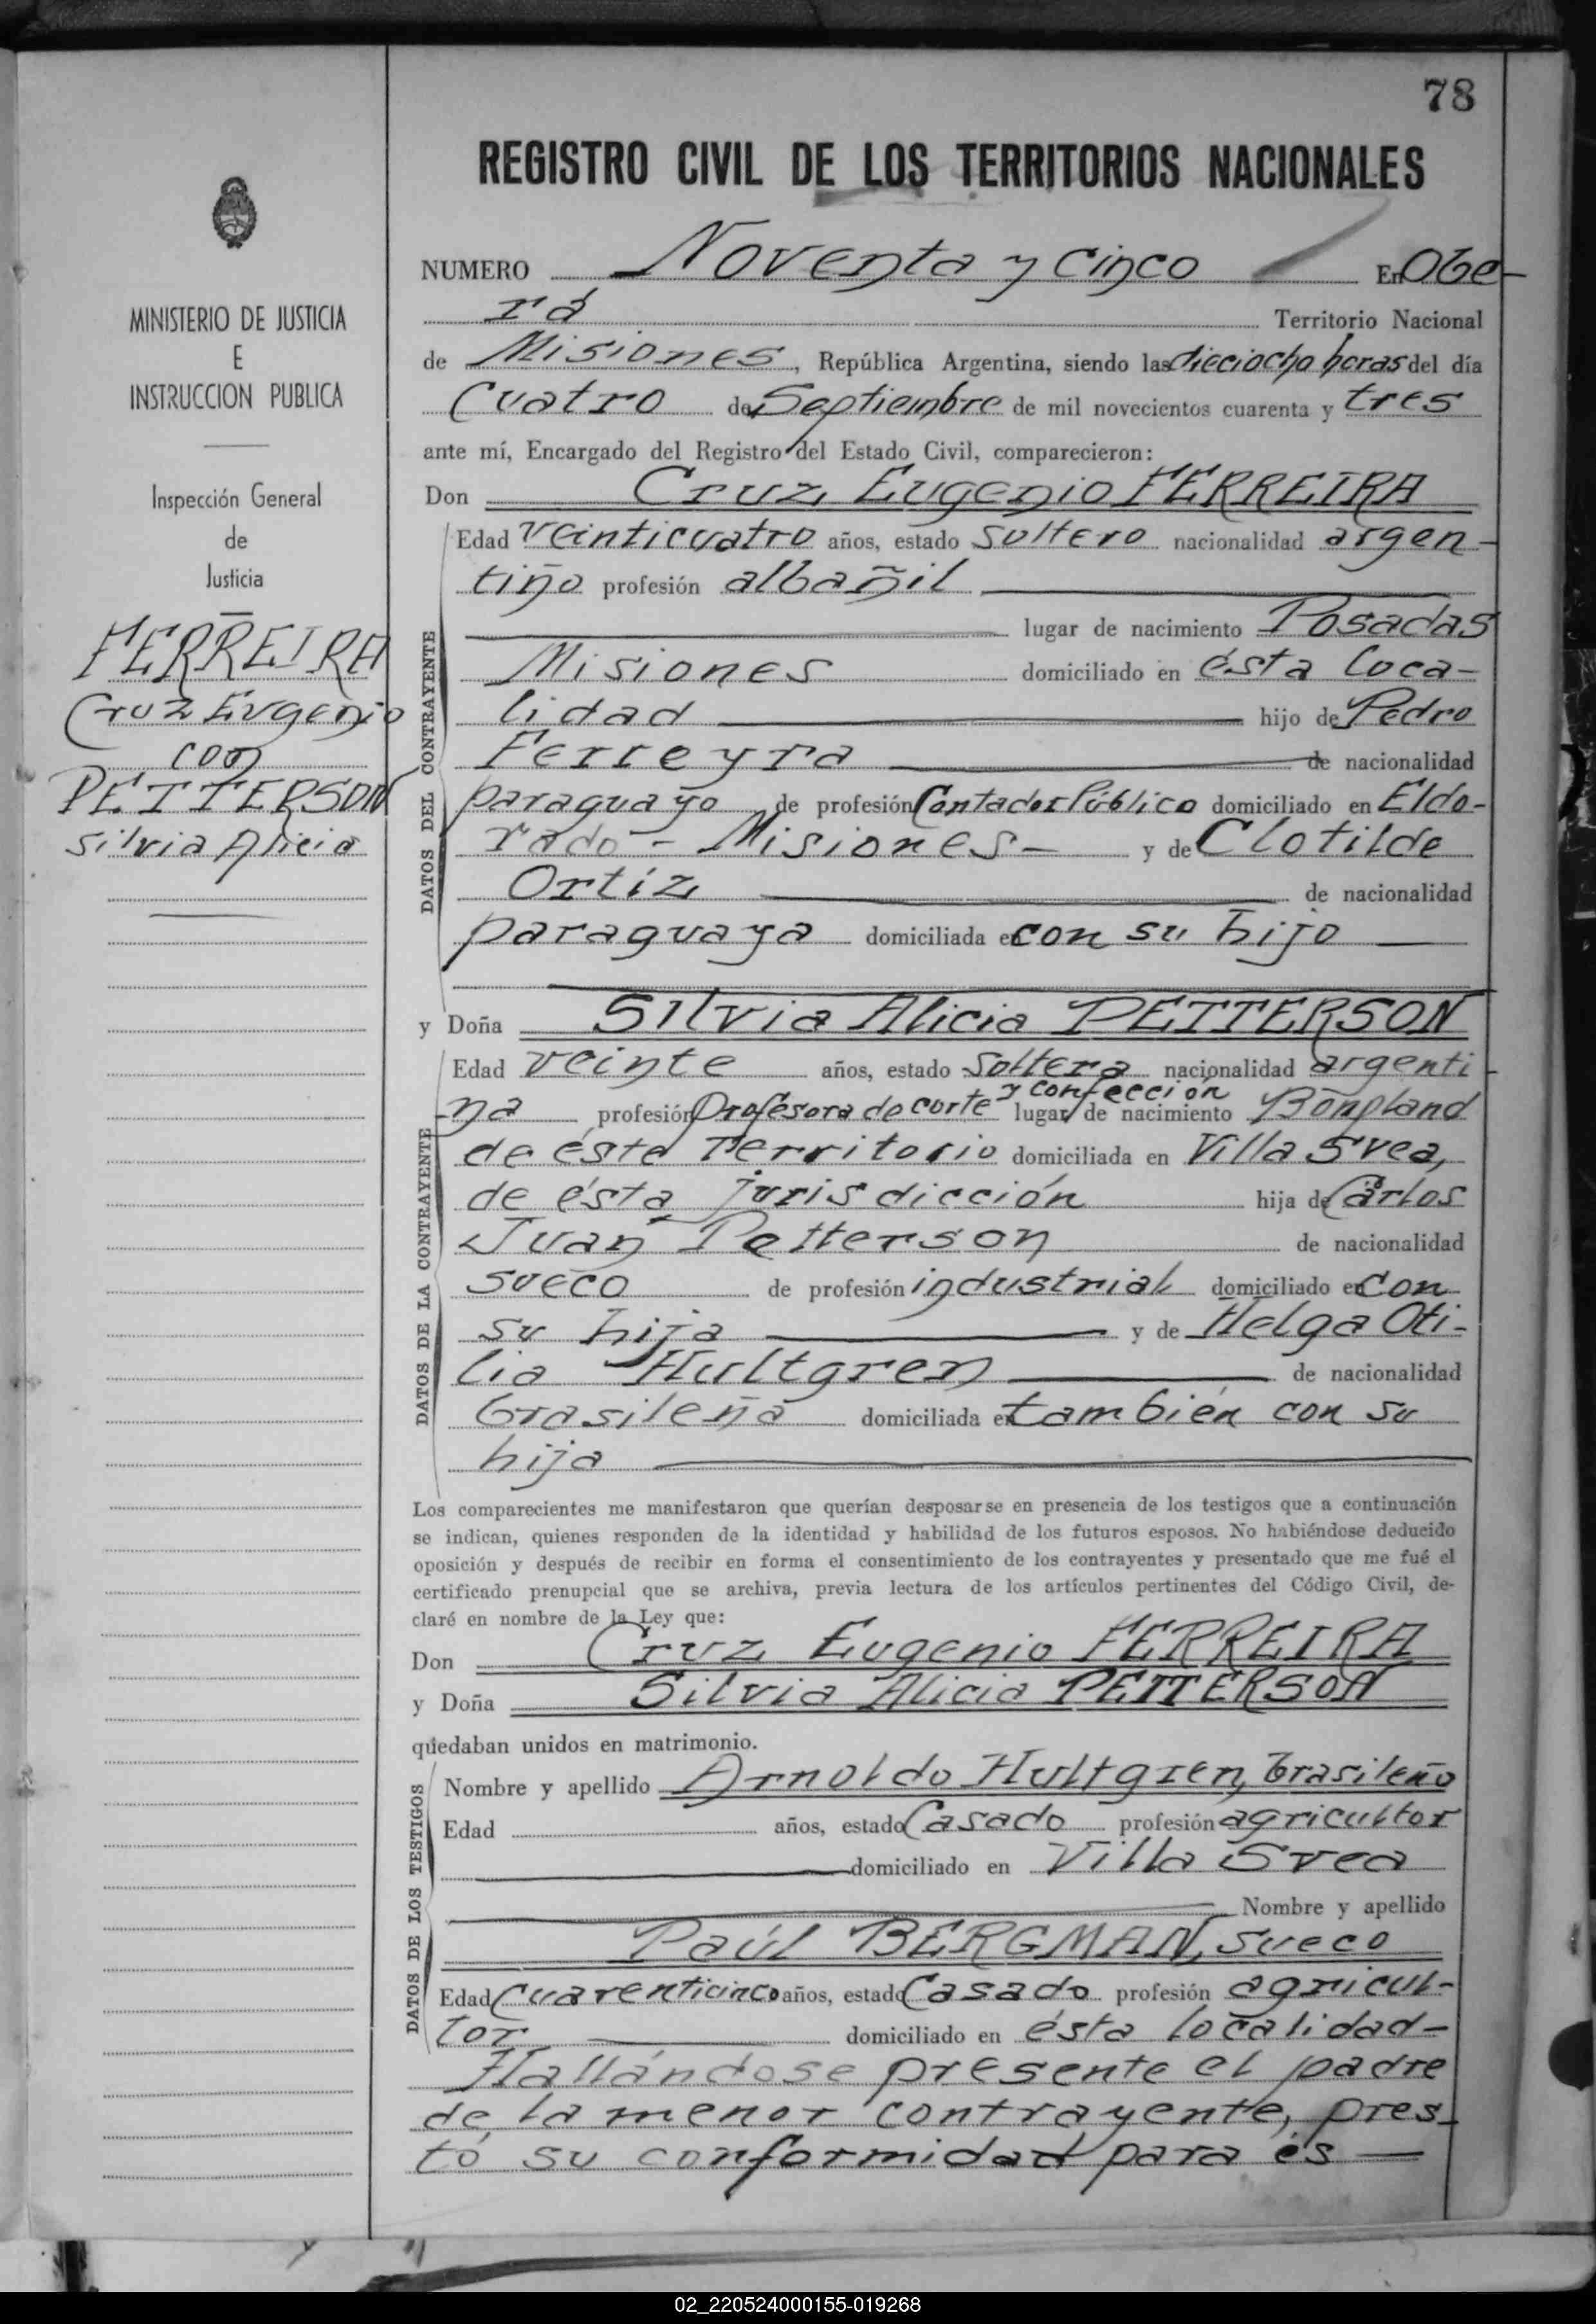 78
REGISTRO CIVIL DE LOS TERRITORIOS NACIONALES
MINISTERIO DE JUSTICIA
E
INSTRUCCION PUBLICA
Inspección General
de
Justicia
FERREIRA
Cruz Eugenio
con
PETTERSON
Silvia Alicia
NUMERO Noventa y cinco En Obe-
rá Territorio Nacional
de Misiones, República Argentina, siendo las dieciocho horas del día
Cuatro de Septiembre de mil novecientos cuarenta y tres
ante mí, Encargado del Registro del Estado Civil, comparecieron:
Don Cruz Eugenio FERREIRA
DATOS DEL CONTRAYENTE
Edad veinticuatro años, estado soltero nacionalidad argen-
tino profesión albañil
lugar de nacimiento Posadas
Misiones domiciliado en ésta loca-
lidad hijo de Pedro
Ferreyra de nacionalidad
paraguayo de profesión Contador Público domiciliado en Eldo-
rado - Misiones - y de Clotilde
Ortíz de nacionalidad
paraguaya domiciliada en con su hijo
y Doña Silvia Alicia PETTERSON
DATOS DE LA CONTRAYENTE
Edad veinte años, estado soltera nacionalidad argenti-
na profesión Profesora de corte y confección lugar de nacimiento Bonpland
de éste Territorio domiciliada en Villa Svea,
de ésta jurisdicción hija de Carlos
Juan Petterson de nacionalidad
sueco de profesión industrial domiciliado en con
su hija y de Helga Oti-
lia Hultgren de nacionalidad
brasileña domiciliada en también con su
hija
Los comparecientes me manifestaron que querían desposarse en presencia de los testigos que a continuación
se indican, quienes responden de la identidad y habilidad de los futuros esposos. No habiéndose deducido
oposición y después de recibir en forma el consentimiento de los contrayentes y presentado que me fué el
certificado prenupcial que se archiva, previa lectura de los artículos pertinentes del Código Civil, de-
claré en nombre de la Ley que:
Don Cruz Eugenio FERREIRA
y Doña Silvia Alicia PETTERSON
quedaban unidos en matrimonio.
DATOS DE LOS TESTIGOS
Nombre y apellido Arnoldo Hultgren, brasileño
Edad años, estado Casado profesión agricultor
domiciliado en Villa Svea
Nombre y apellido
Paúl BERGMAN, sueco
Edad Cuarenticinco años, estado Casado profesión agricul-
tor domiciliado en ésta localidad-
Hallándose presente el padre
de la menor contrayente, pres-
tó su conformidad para és
02_220524000155-019268